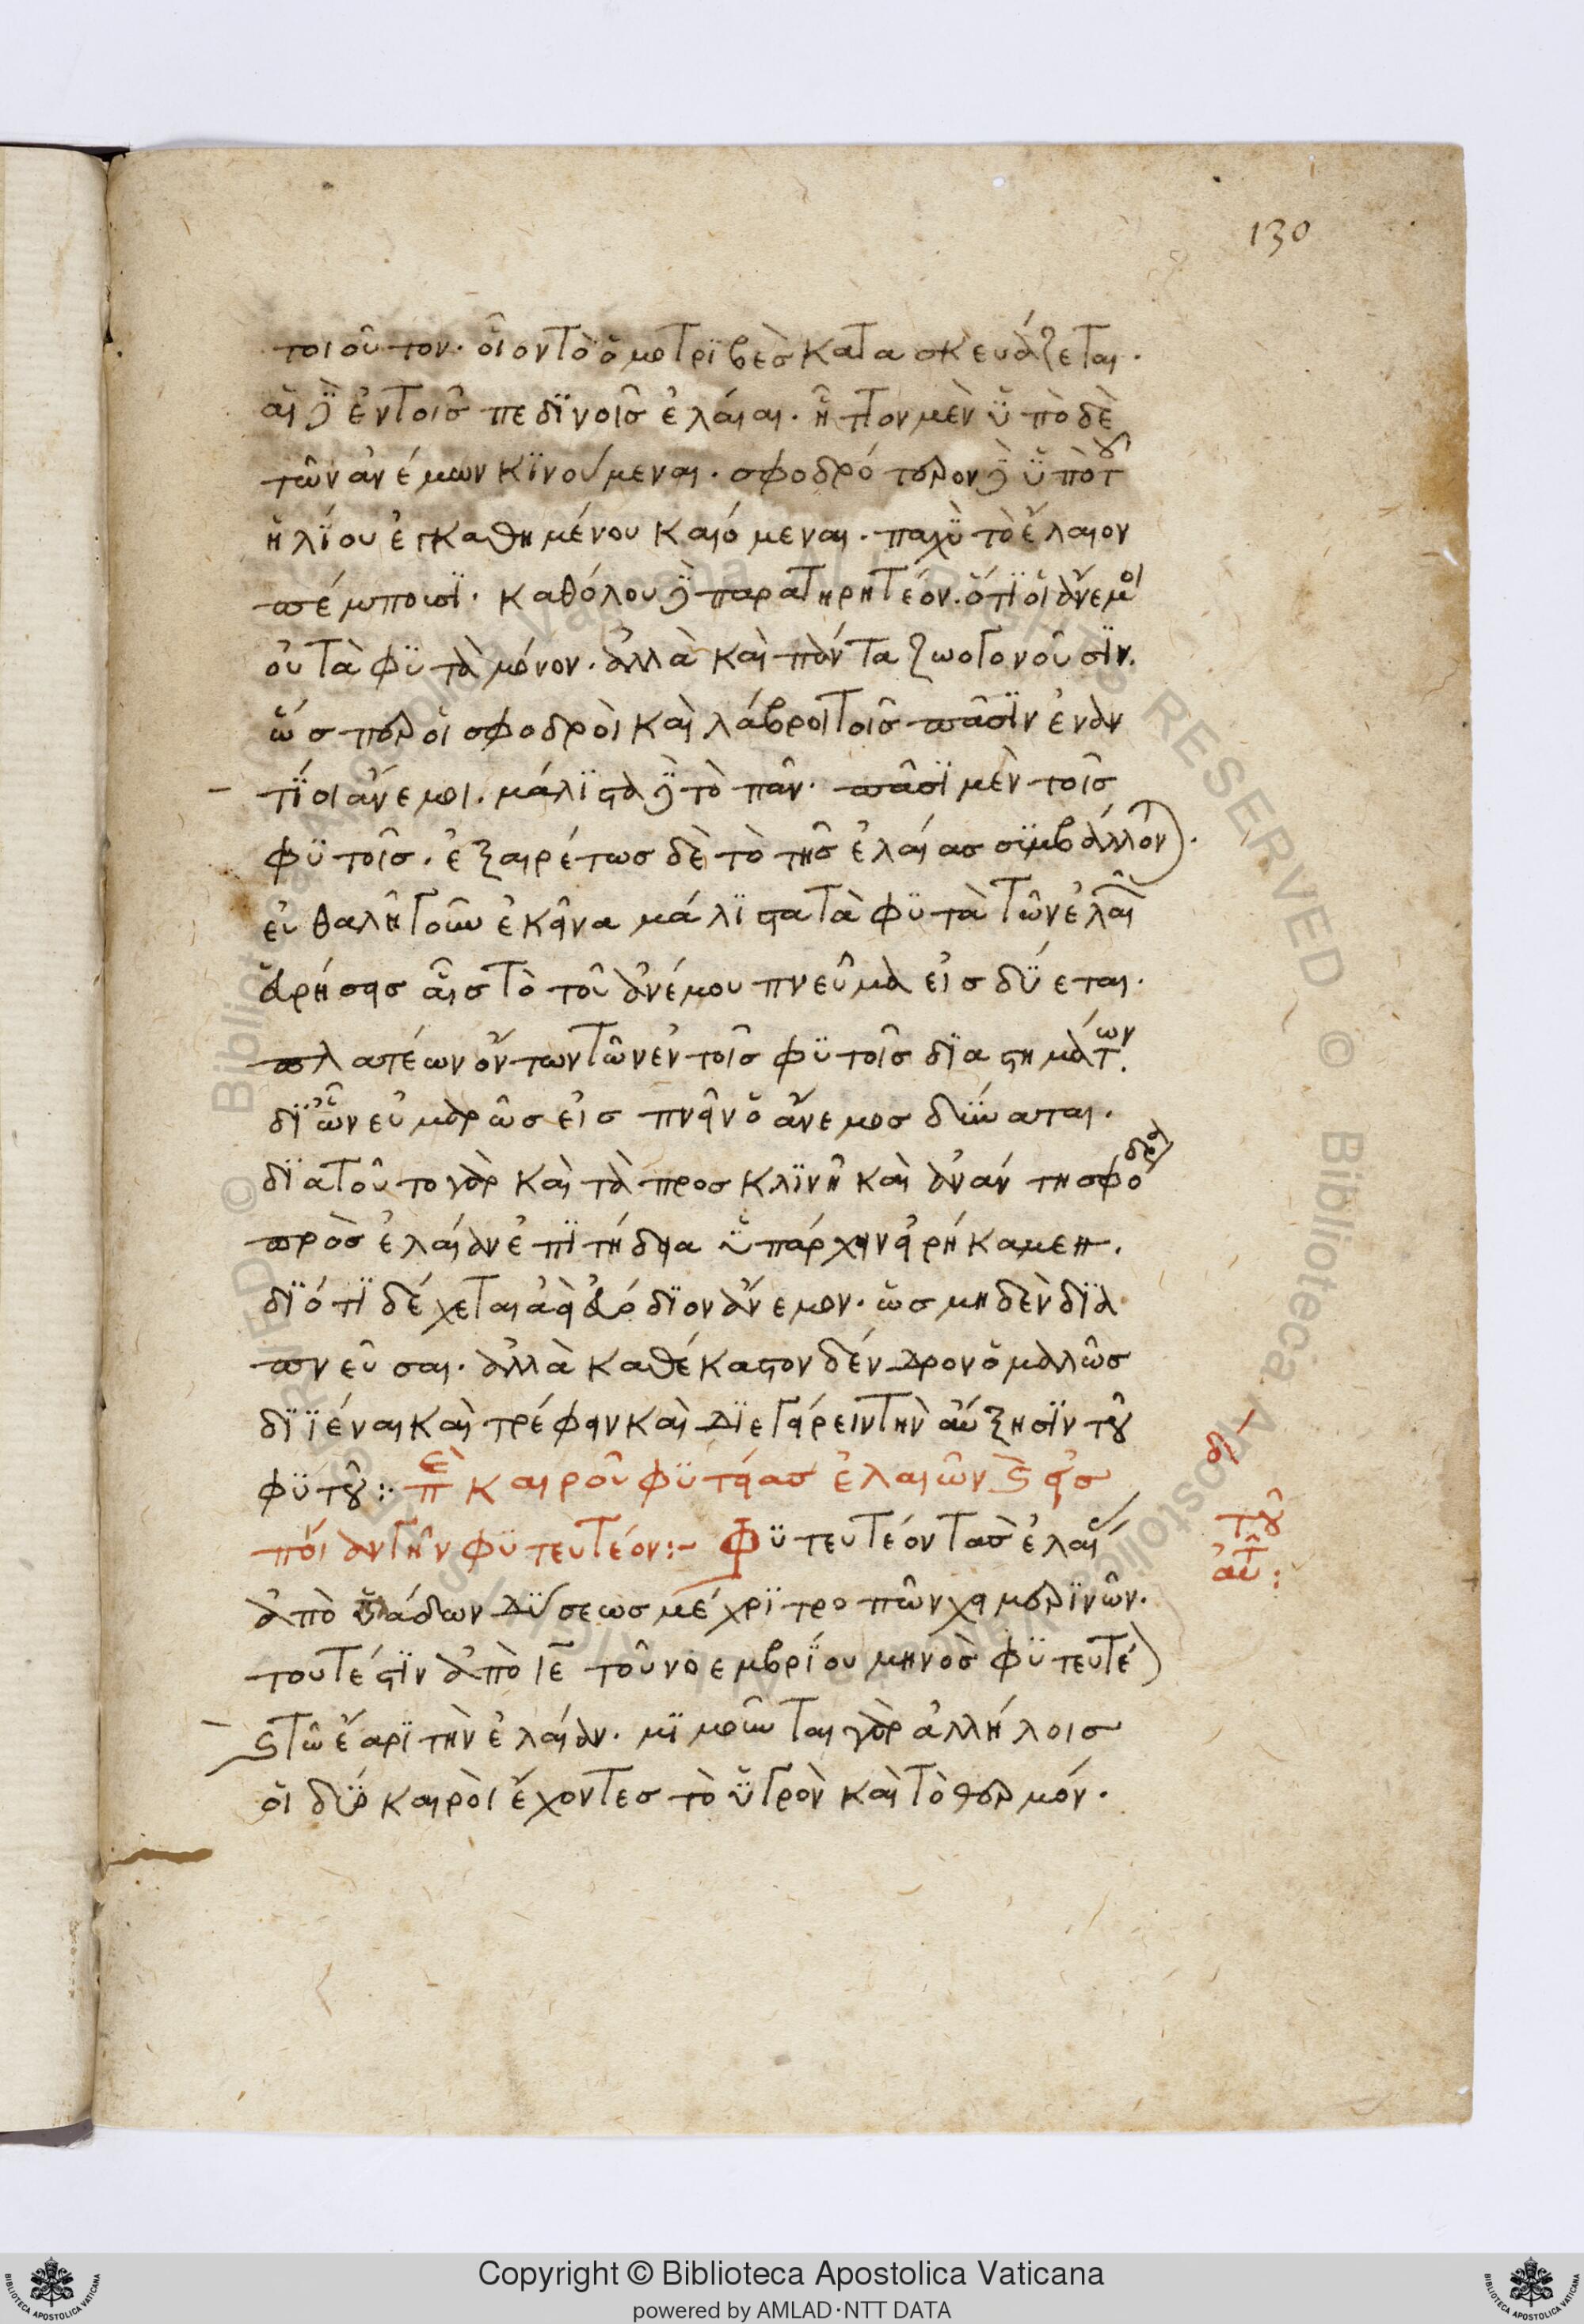 130
τοιοῦτον. οἷον τὸ ὁμοτριβὲς κατασκευάζεται.
αἱ δὲ ἐν τοῖς πεδϊνοῖς ἐλάιαι. ἧττον μὲν ϋπὸ δὲ
τῶν ἀνέμων κϊνούμεναι. σφοδρότερον δὲ ϋπὸ τοῦ
ἡλΐου ἐγκαθημένου καιόμεναι. παχὺ τὸ ἔλαιον
πέμπουσϊ. καθόλου δὲ παρατηρητέον. ὅτϊ οἱ ἄνεμοι
οὐ τὰ φϋτὰ μόνον. ἀλλὰ καὶ πάντα ζωογονοῦσϊν.
ὥσπερ οἱ σφοδροὶ καὶ λάβροι τοῖς πᾶσϊν ἐναν
τΐοι ἄνεμοι. μάλϊστα δὲ τὸ πᾶν. πᾶσϊ μὲν τοῖς
φϋτοῖς. ἐξαιρέτως δὲ τὸ τῆς ἐλάιας συμβάλλον).
εὐθαλῆ γοῦν ἐκεῖνα μάλϊστα τὰ φϋτὰ τῶν ἐλαιῶν
εὑρήσεις αἷς τὸ τοῦ ἀνέμου πνεῦμα εἰσδΰεται.
πλατέων ὄντων τῶν ἐν τοῖς φϋτοῖς δϊαστημάτων.
δϊ ὧν εὐμαρῶς εἰσπνεῖν ὁ ἄνεμος δύναται.
δϊατοῦτο γὰρ καὶ τὰ προσκλϊνῆ καὶ ἀνάντη σφόδρα
πρὸς ἐλάιαν ἐπϊτήδεια ϋπάρχειν εἰρήκαμεν.
δϊότϊ δέχεται ἀεὶ εὐόδϊον ἄνεμον. ὡς μηδὲν δϊα
πνεῦσαι. ἀλλὰ καθέκαστον δένδρον ὁμαλῶς
δϊϊέναι καὶ τρέφειν καὶ δϊεγείρειν τὴν αὔξησϊν τοῦ
φϋτοῦ: περὶ καιροῦ φϋτείας ἐλαιῶν καὶ εἰς
ποίαν γῆν φϋτευτέον:- Φϋτευτέον τὰς ἐλαίας
ἀπὸ ϋάδων δΰσεως μέχρϊ τροπῶν χειμερϊνῶν.
τουτέστϊν ἀπὸ ιε τοῦ νοεμβρΐου μηνὸς φϋτευτέ)
καὶ τῶ ἔαρϊ τὴν ἐλάιαν. μϊμοῦνται γὰρ ἀλλήλοις
οἱ δύο καιροὶ ἔχοντες τὸ ϋγρὸν καὶ τὸ θερμόν.
δι
τοῦ
αὐτοῦ:
Copyright © Biblioteca Apostolica Vaticana
powered by AMLAD·NTT DATA